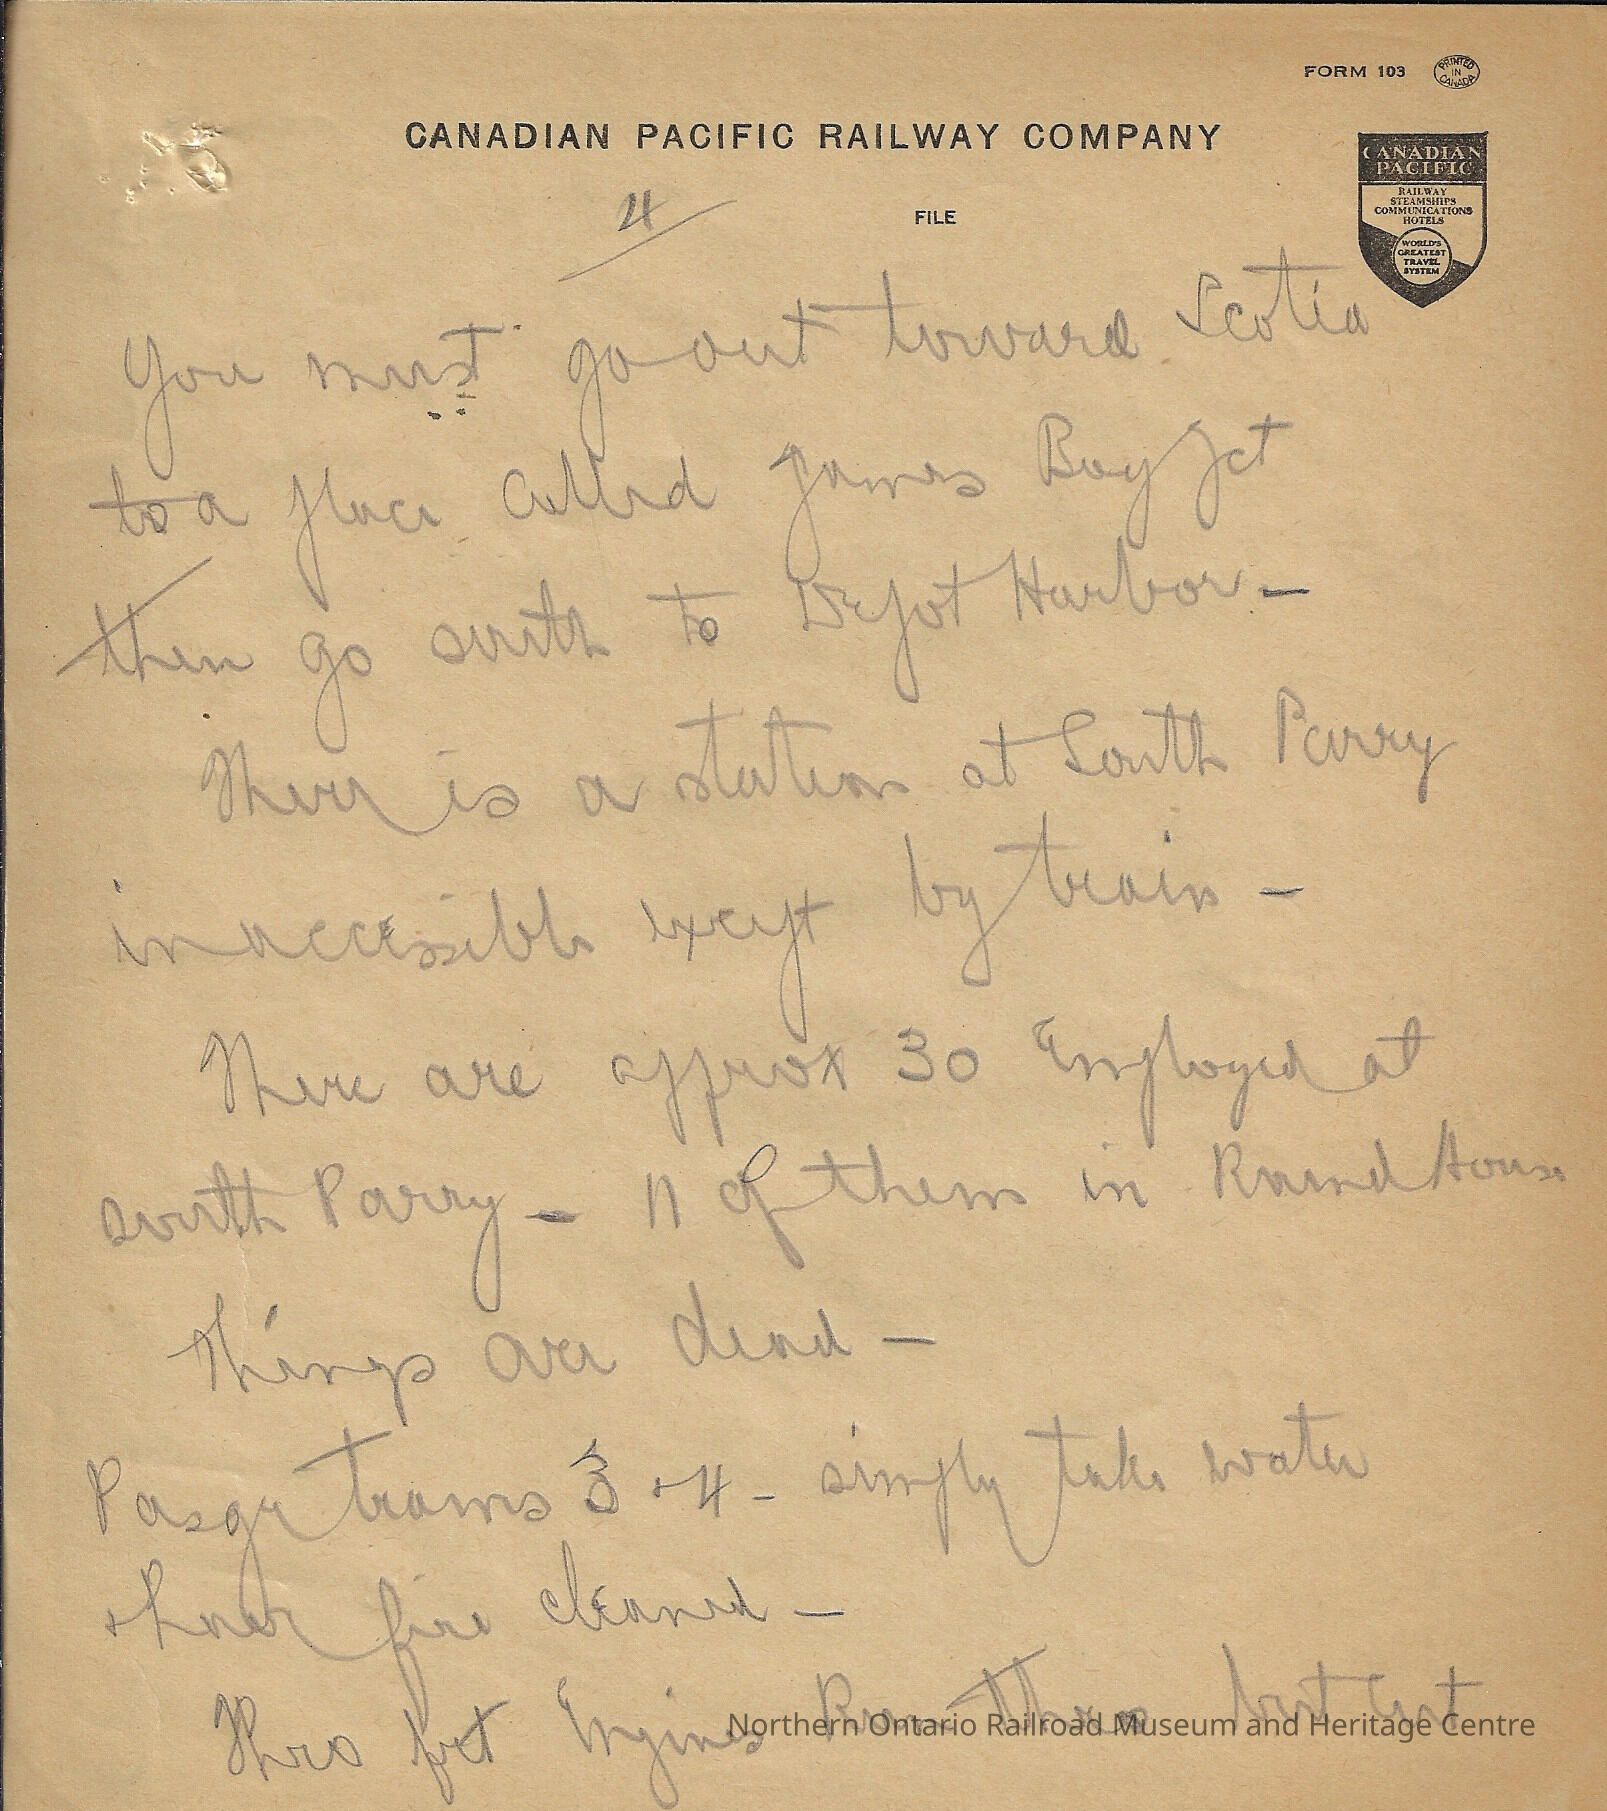 FORM 103 PRINTED IN CANADA
CANADIAN PACIFIC RAILWAY COMPANY
CANADIAN
PACIFIC
RAILWAY
STEAMSHIPS
COMMUNICATIONS
HOTELS
WORLD'S
GREATEST
TRAVEL
SYSTEM
4
FILE
You must go out toward Scotia
to a place called James Bay Jct
then go south to Depot Harbor -
There is a station at South Parry
inaccessible except by train -
There are approx 30 Employed at
south Parry - 11 of them in Round House
Things are dead -
Pasgr trains 3 + 4 - simply take water
+ have fire cleaned -
Thro frt Engines Run thro but
Northern Ontario Railroad Museum and Heritage Centre